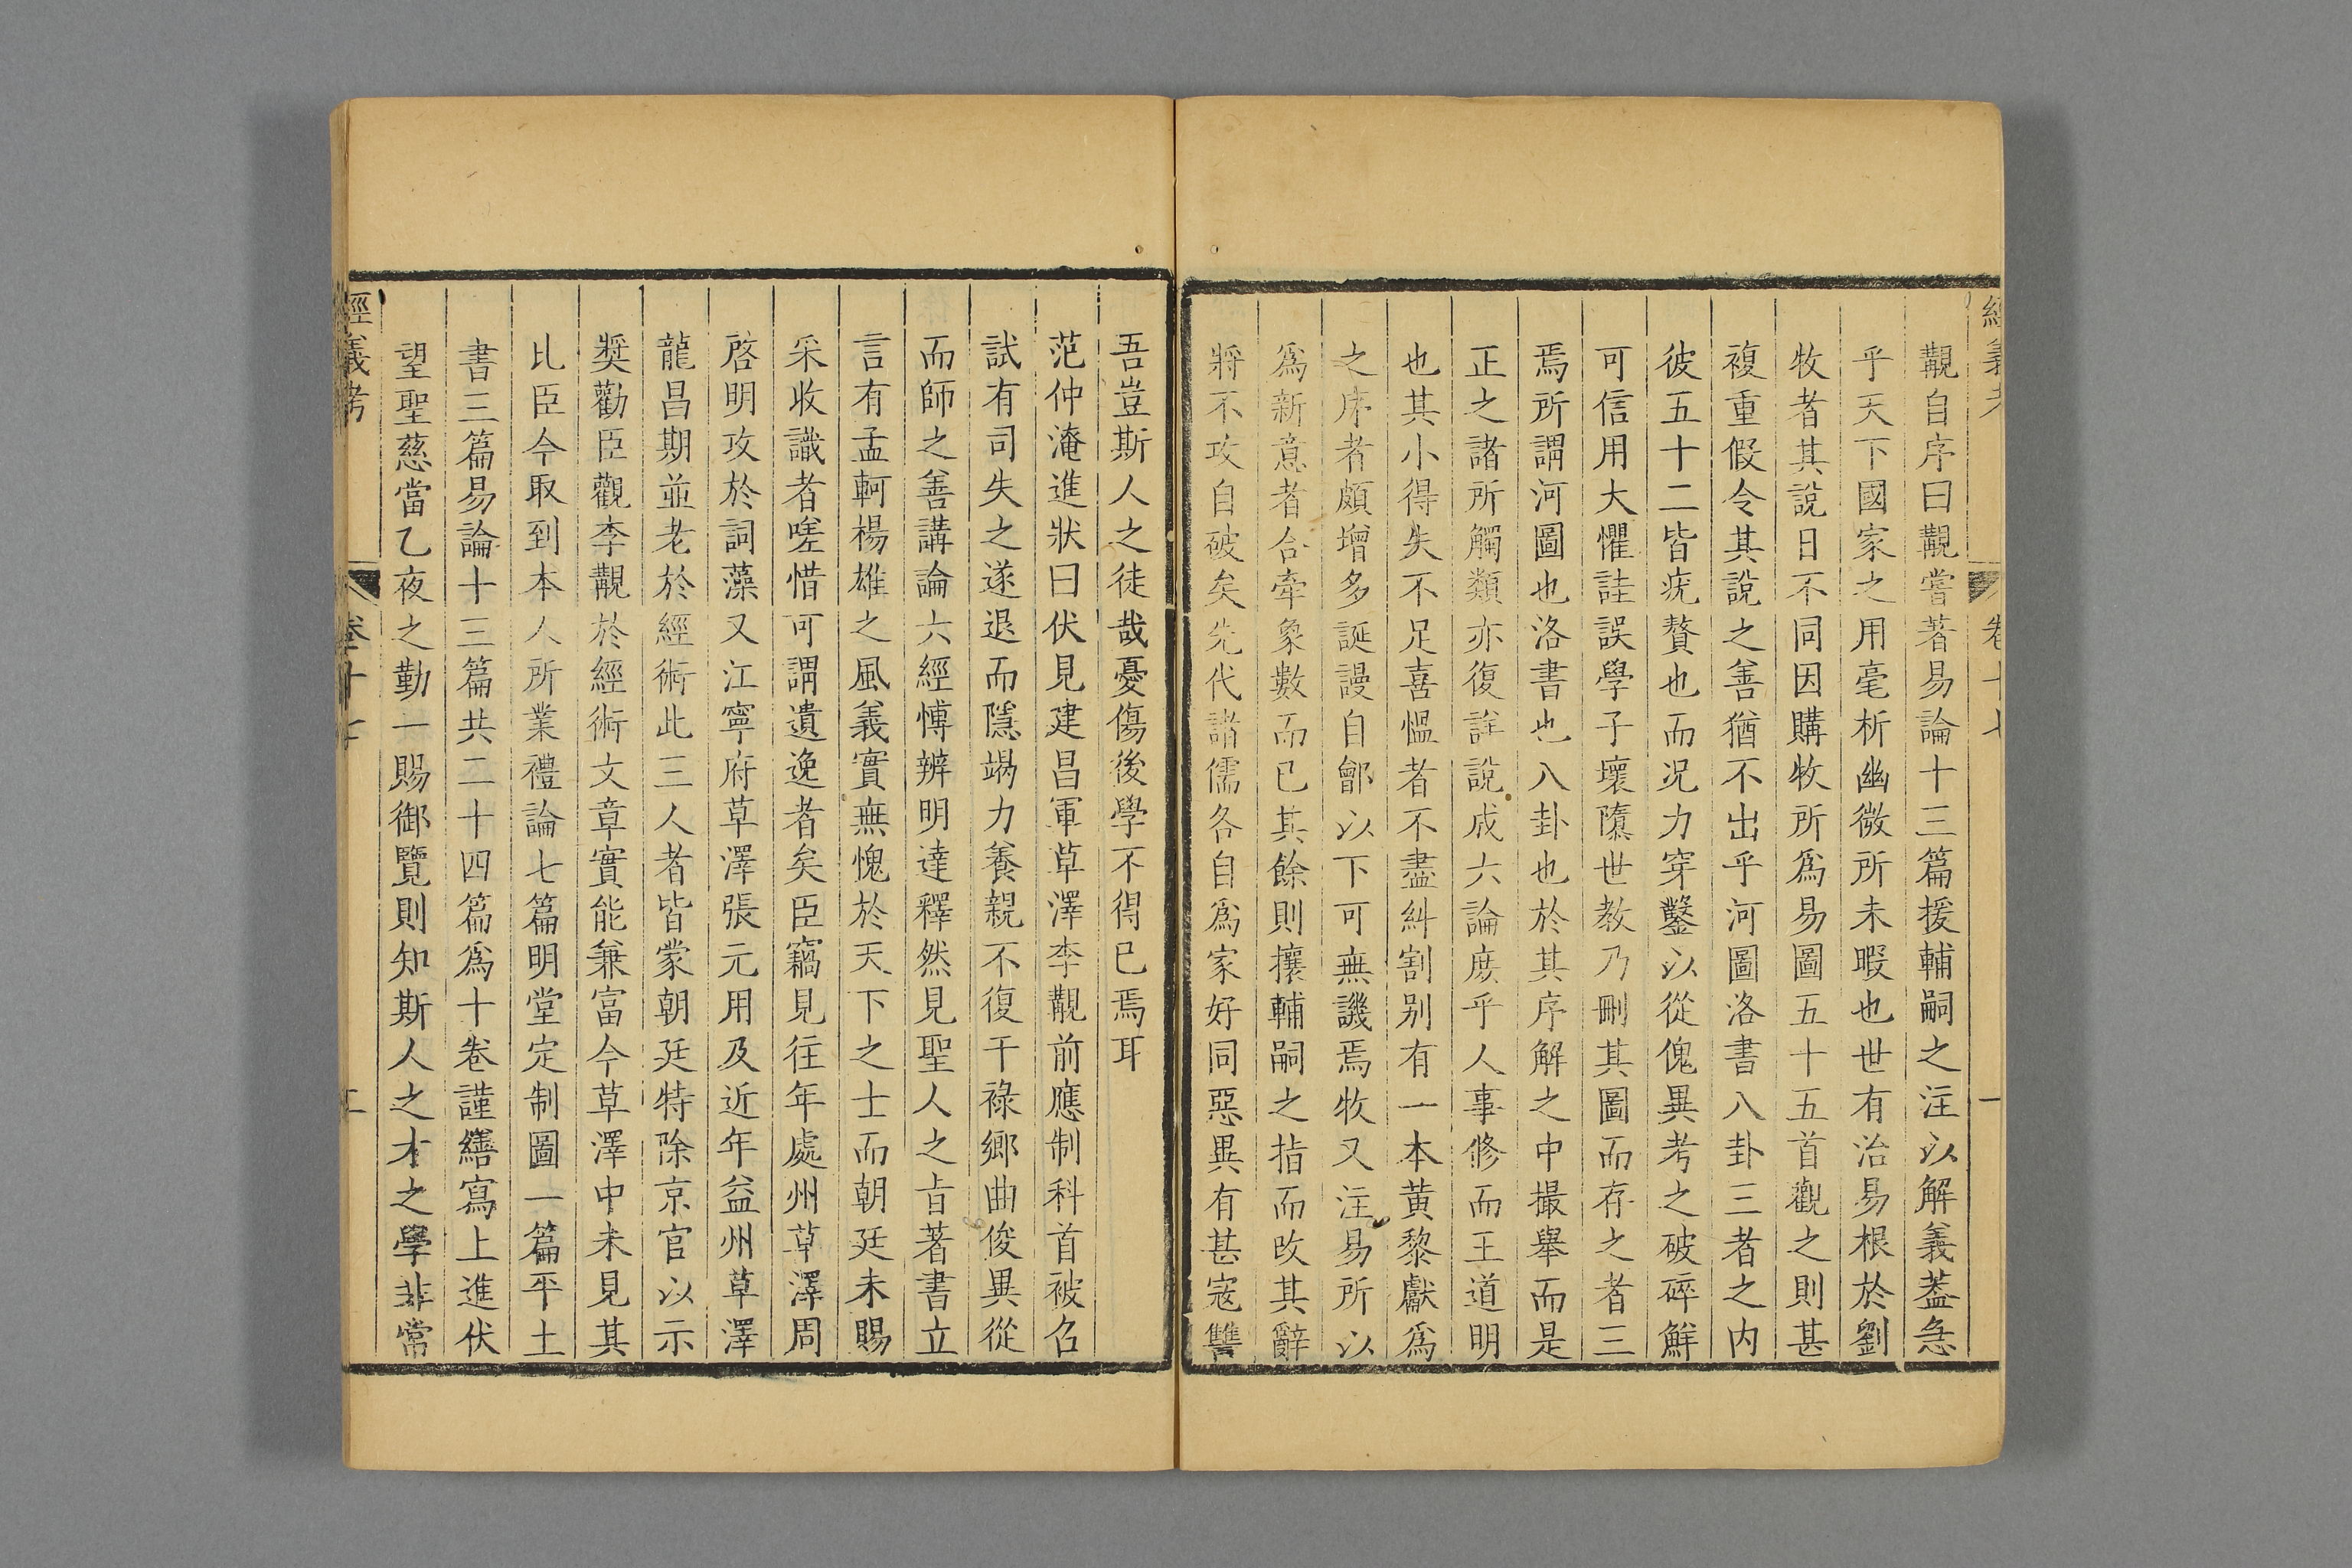 經義考 卷十七 一
覯自序曰覯嘗著易論十三篇援輔嗣之注以解義葢急
乎天下國家之用毫析幽微所未暇也世有治易根於劉
牧者其說日不同因購牧所爲易圖五十五首觀之則甚
複重假令其說之善猶不出乎河圖洛書八卦三者之内
彼五十二皆疣贅也而况力穿鑿以從傀異考之破碎鮮
可信用大懼詿誤學子壞隳世教乃刪其圖而存之者三
焉所謂河圖也洛書也八卦也於其序解之中撮舉而是
正之諸所觸類亦復詳說成六論庶乎人事修而王道明
也其小得失不足喜慍者不盡糾割别有一本黄黎獻爲
之序者頗增多誕謾自鄶以下可無譏焉牧又注易所以
爲新意者合牽象數而已其餘則攘輔嗣之指而改其辭
將不攻自破矣先代諸儒各自爲家好同惡異有甚寇讐
吾豈斯人之徒哉憂傷後學不得已焉耳
范仲淹進狀曰伏見建昌軍草澤李覯前應制科首被召
試有司失之遂退而隱竭力養親不復干祿鄉曲俊異從
而師之善講論六經博辨明達釋然見聖人之旨著書立
言有孟軻楊雄之風義實無愧於天下之士而朝廷未賜
采收識者嗟惜可謂遺逸者矣臣竊見往年處州草澤周
啓明攻於詞藻又江寧府草澤張元用及近年益州草澤
龍昌期並老於經術此三人者皆蒙朝廷特除京官以示
奬勸臣觀李覯於經術文章實能兼富今草澤中未見其
比臣今取到本人所業禮論七篇明堂定制圖一篇平土
書三篇易論十三篇共二十四篇爲十卷謹繕寫上進伏
望聖慈當乙夜之勤一賜御覽則知斯人之才之學非常
經義考 卷十七 二